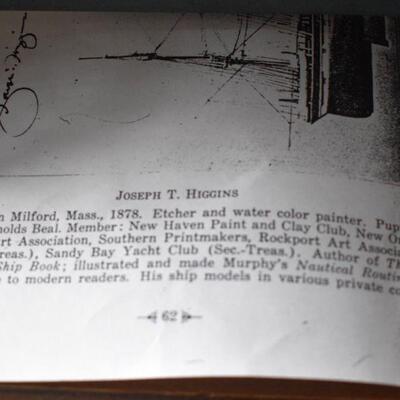 JOSEPH T. HIGGINS
n Milford, Mass., 1878. Etcher and water color painter. Pup
nolds Beal. Member: New Haven Paint and Clay Club, New Or
rt Association, Southern Printmakers, Rockport Art Associa
reas.), Sandy Bay Yacht Club (Sec.-Treas.). Author of Th
Ship Book; illustrated and made Murphy's Nautical Routin
e to modern readers. His ship models in various private co
62